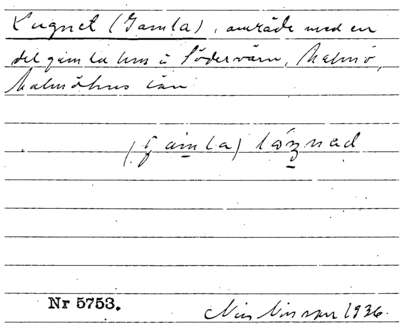 Lugnet (Gamla), område med en
del gamla hus i Södervärn, Malmö,
Malmöhus län
(gamla)
Nr 5753.
Nils Nilsson 1936.